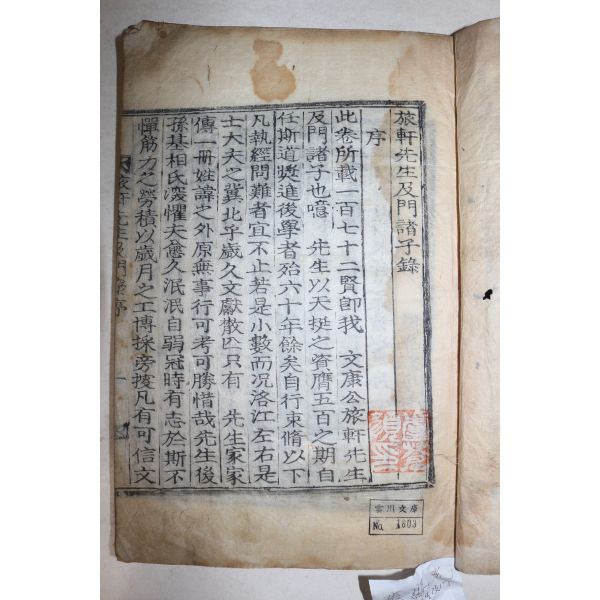 旅軒先生及門諸子錄
序
此卷所載一百七十二賢卽我 文康公旅軒先生
及門諸子也噫 先生以天挺之資膺五百之期自
任斯道奬進後學者殆六十年餘矣自行束脩以下
凡執經問難者宜不止若是小數而况洛江左右是
士大夫之冀北乎歲久文獻散亾只有 先生家家
傳一冊姓諱之外原無事行可考可勝惜哉先生後
孫基相氏深懼夫愈久泯泯自弱冠時有志於斯不
憚筋力之勞積以歲月之工博採旁搜凡有可信文
旅軒先生及門錄序
一
雲川文庫
No. 1603